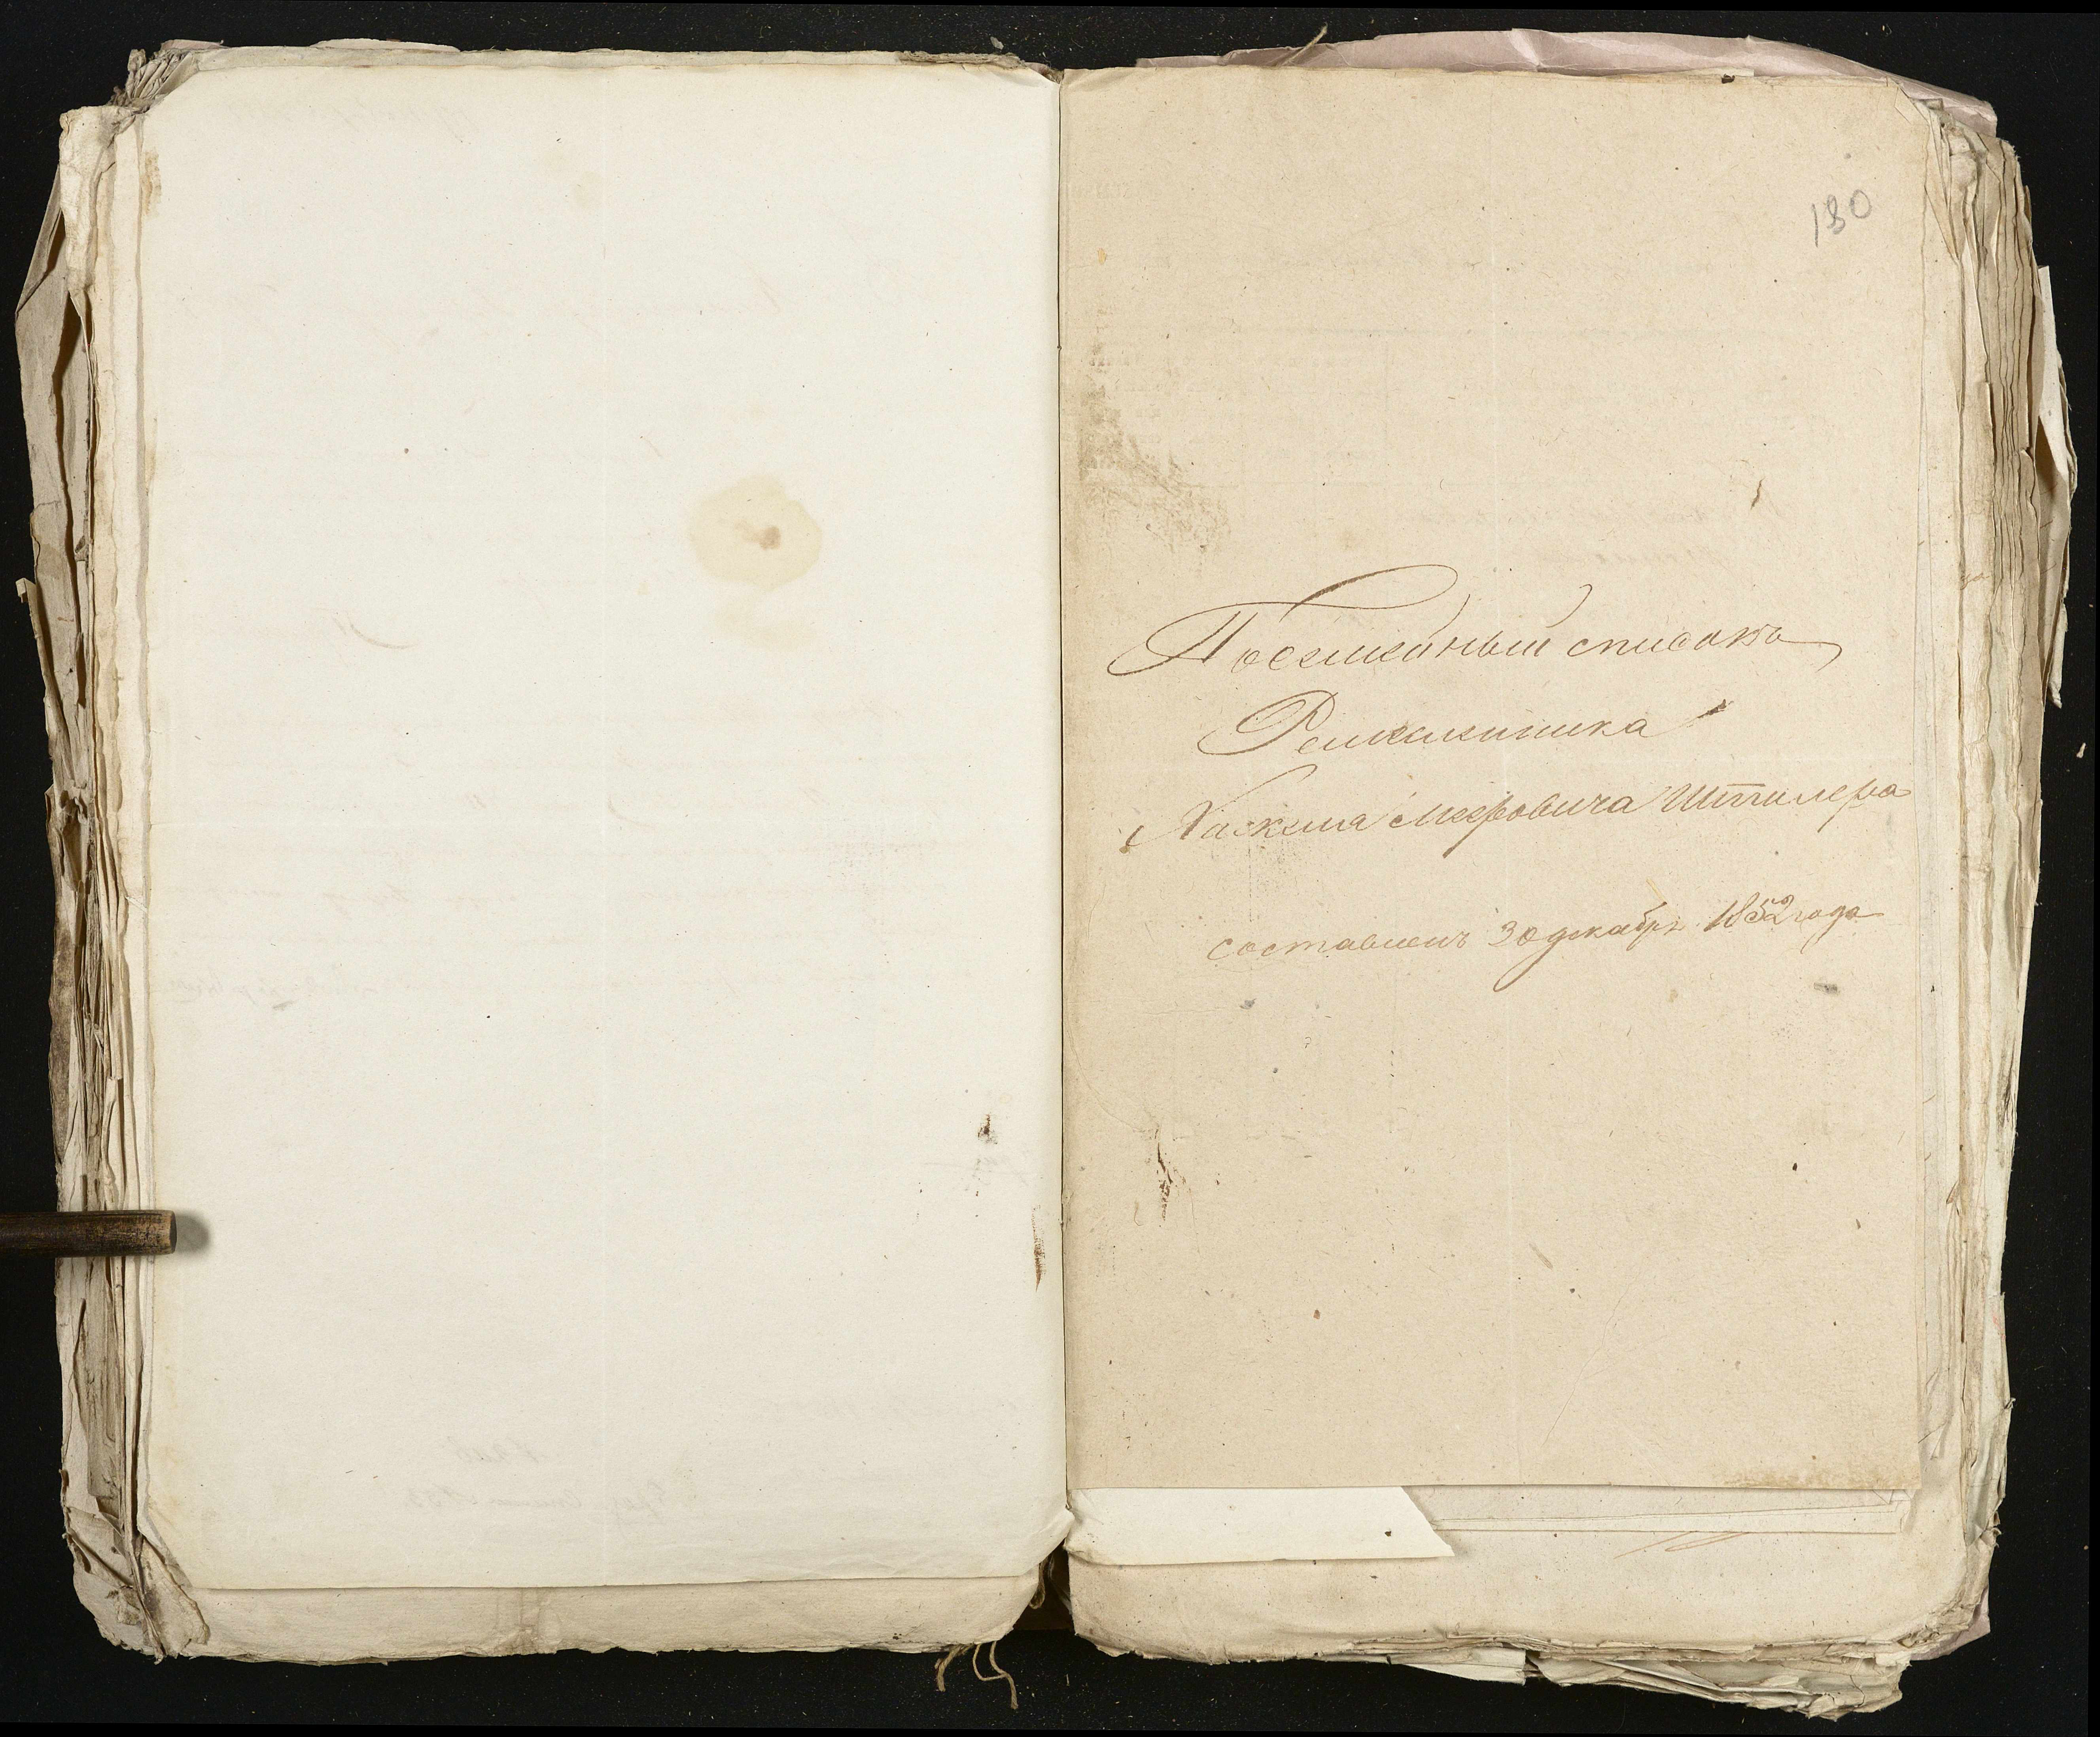 180
Посемейный списокъ
Ремесленика
Хаскеля Мееровича Штилера
составленъ 30 декабря 1852 года